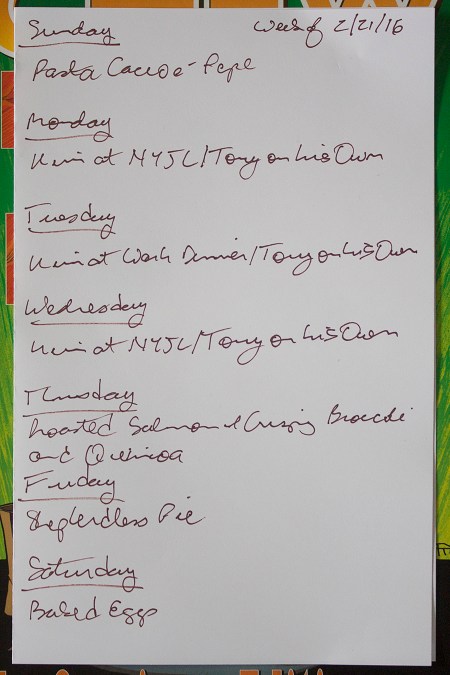 Sunday Week of 2/21/16
Pasta Cacio e Pepe
Monday
Kim at NYJL/Tony on his Own
Tuesday
Kim at Work Dinner/Tony on his Own
Wednesday
Kim at NYJL/Tony on his Own
Thursday
Roasted Salmon & Crispy Broccoli
and Quinoa
Friday
Shepherdless Pie
Saturday
Baked Eggs